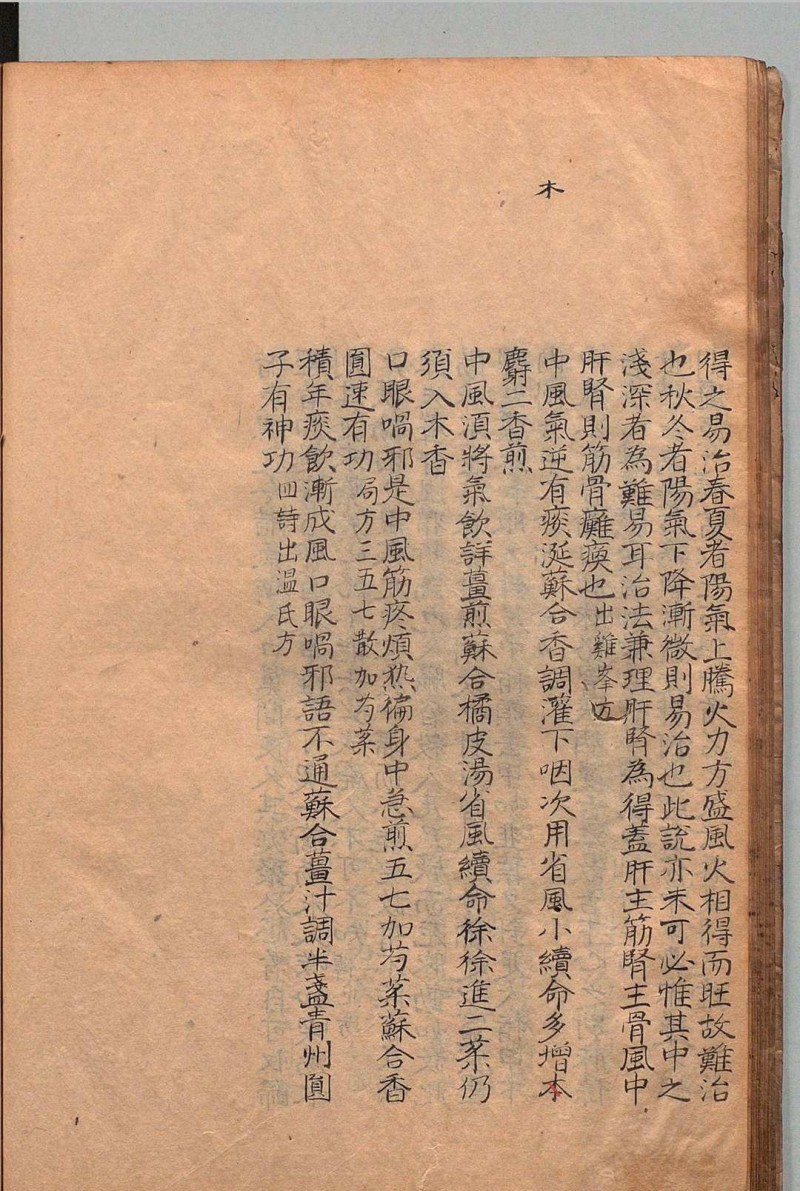 得之易治春夏者陽氣上騰火力方盛風火相得而旺故難治
也秋冬者陽氣下降漸微則易治也此說亦未可必惟其中之
淺深者為難易耳治法兼理肝腎為得蓋肝主筋腎主骨風中
肝腎則筋骨癱瘓也出雞峯方
木
中風氣逆有痰涎蘇合香調灌下咽次用省風小續命多增本
麝二香煎
中風湏將氣飲詳薑煎蘇合橘皮湯省風續命徐徐進二藥仍
須入木香
口眼喎邪是中風筋疼煩热徧身中急煎五七加芍藥蘇合香
圓速有功局方三五七散加芍藥
積年痰飲漸成風口眼喎邪語不通蘇合薑汁調半盞青州圓
子有神功四詩出温氏方